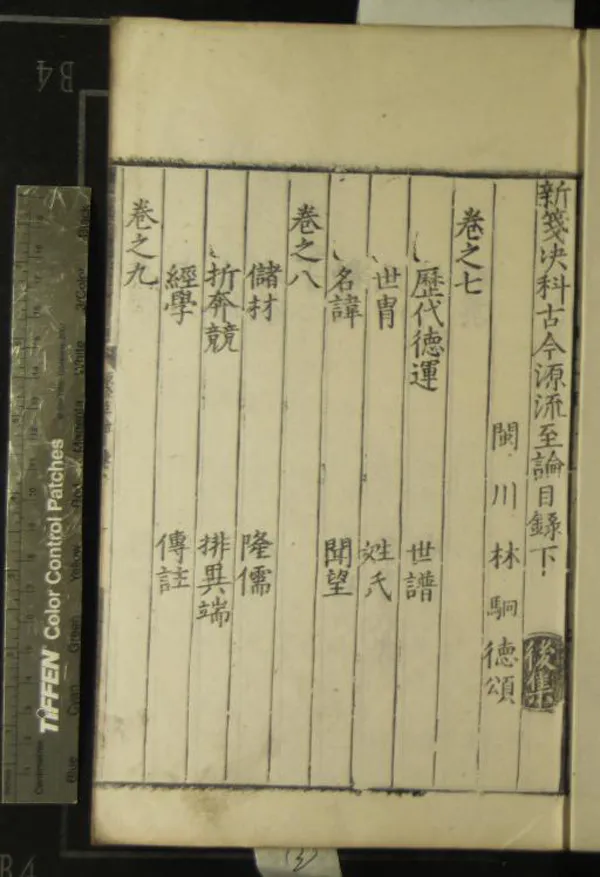 新箋决科古今源流至論目錄下
後集
閩川林駉德頌
卷之七
歷代德運 世譜
世冑 姓氏
名諱 聞望
卷之八
儲材 隆儒
折奔競 排異端
經學 傳註
卷之九
TIFFEN Color Control Patches
Blue Cyan Green Yellow Red Magenta White 3/Color Black
B4
B4